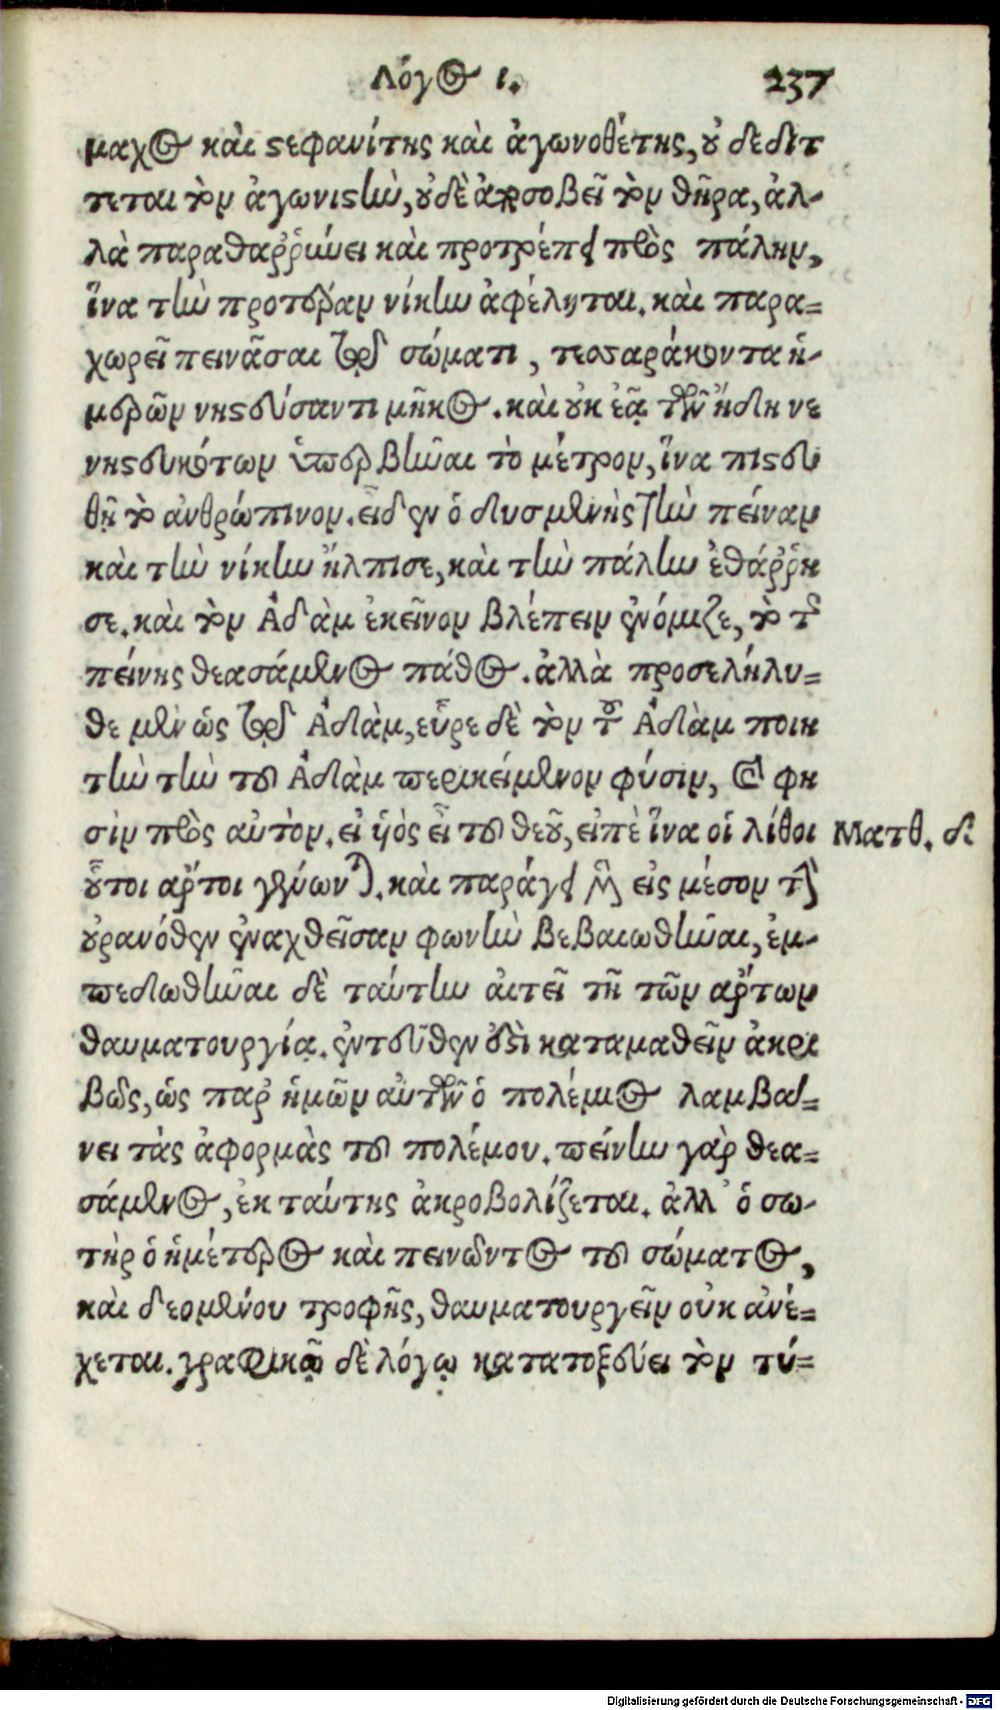 Λόγος ι.
237
μαχος καὶ στεφανίτης καὶ ἀγωνοθέτης, οὐ δεδίτ
τεται τὸν ἀγωνιστὴν, οὐδὲ ἀποσοβεῖ τὸν θῆρα, ἀλ-
λὰ παραθαῤῥύνει καὶ προτρέπει πρὸς πάλην,
ἵνα τὴν προτέραν νίκην ἀφέληται. καὶ παρα-
χωρεῖ πεινᾶσαι τῷ σώματι, τεσσαράκοντα ἡ-
μερῶν νηστεύσαντι μῆκος. καὶ οὐκ ἐᾷ τῶν ἤδη νε
νηστευκότων ὑπερβῆναι τὸ μέτρον, ἵνα πιστευ
θῇ τὸ ἀνθρώπινον. εἶδεν ὁ δυσμενὴς τὴν πείναν
καὶ τὴν νίκην ἤλπισε, καὶ τὴν πάλην ἐθάῤῥη
σε. καὶ τὸν Ἀδὰμ ἐκεῖνον βλέπειν ἐνόμιζε, τὸ τῆς
πείνης θεασάμενος πάθος. ἀλλὰ προσελήλυ-
θε μὲν ὡς τῷ Ἀδὰμ, εὗρε δὲ τὸν τοῦ Ἀδὰμ ποιη
τὴν τὴν τοῦ Ἀδὰμ περικείμενον φύσιν, καὶ φη
σὶν πρὸς αὐτὸν. εἰ υἱὸς εἶ τοῦ θεοῦ, εἰπὲ ἵνα οἱ λίθοι
Ματθ. δ
οὗτοι ἄρτοι γένωνται. καὶ παράγει μὲν εἰς μέσον τὴν
οὐρανόθεν ἐναχθεῖσαν φωνὴν βεβαιωθῆναι, ἐμ-
πεδωθῆναι δὲ ταύτην αἰτεῖ τῇ τῶν ἄρτων
θαυματουργίᾳ. ἐντεῦθεν ἐστὶ καταμαθεῖν ἀκρι
βῶς, ὡς παρ ἡμῶν αὐτῶν ὁ πολέμιος λαμβά-
νει τὰς ἀφορμὰς τοῦ πολέμου. πείνην γὰρ θεα-
σάμενος, ἐκ ταύτης ἀκροβολίζεται. ἀλλ' ὁ σω-
τὴρ ὁ ἡμέτερος καὶ πεινῶντος τοῦ σώματος,
καὶ δεομένου τροφῆς, θαυματουργεῖν οὐκ ἀνέ-
χεται. γραφικῷ δὲ λόγῳ κατατοξεύει τὸν τύ-
Digitalisierung gefördert durch die Deutsche Forschungsgemeinschaft - DFG